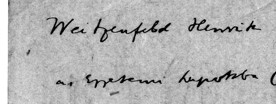 Weitzenfeld Henrik
az Egyetemi Lapokba (